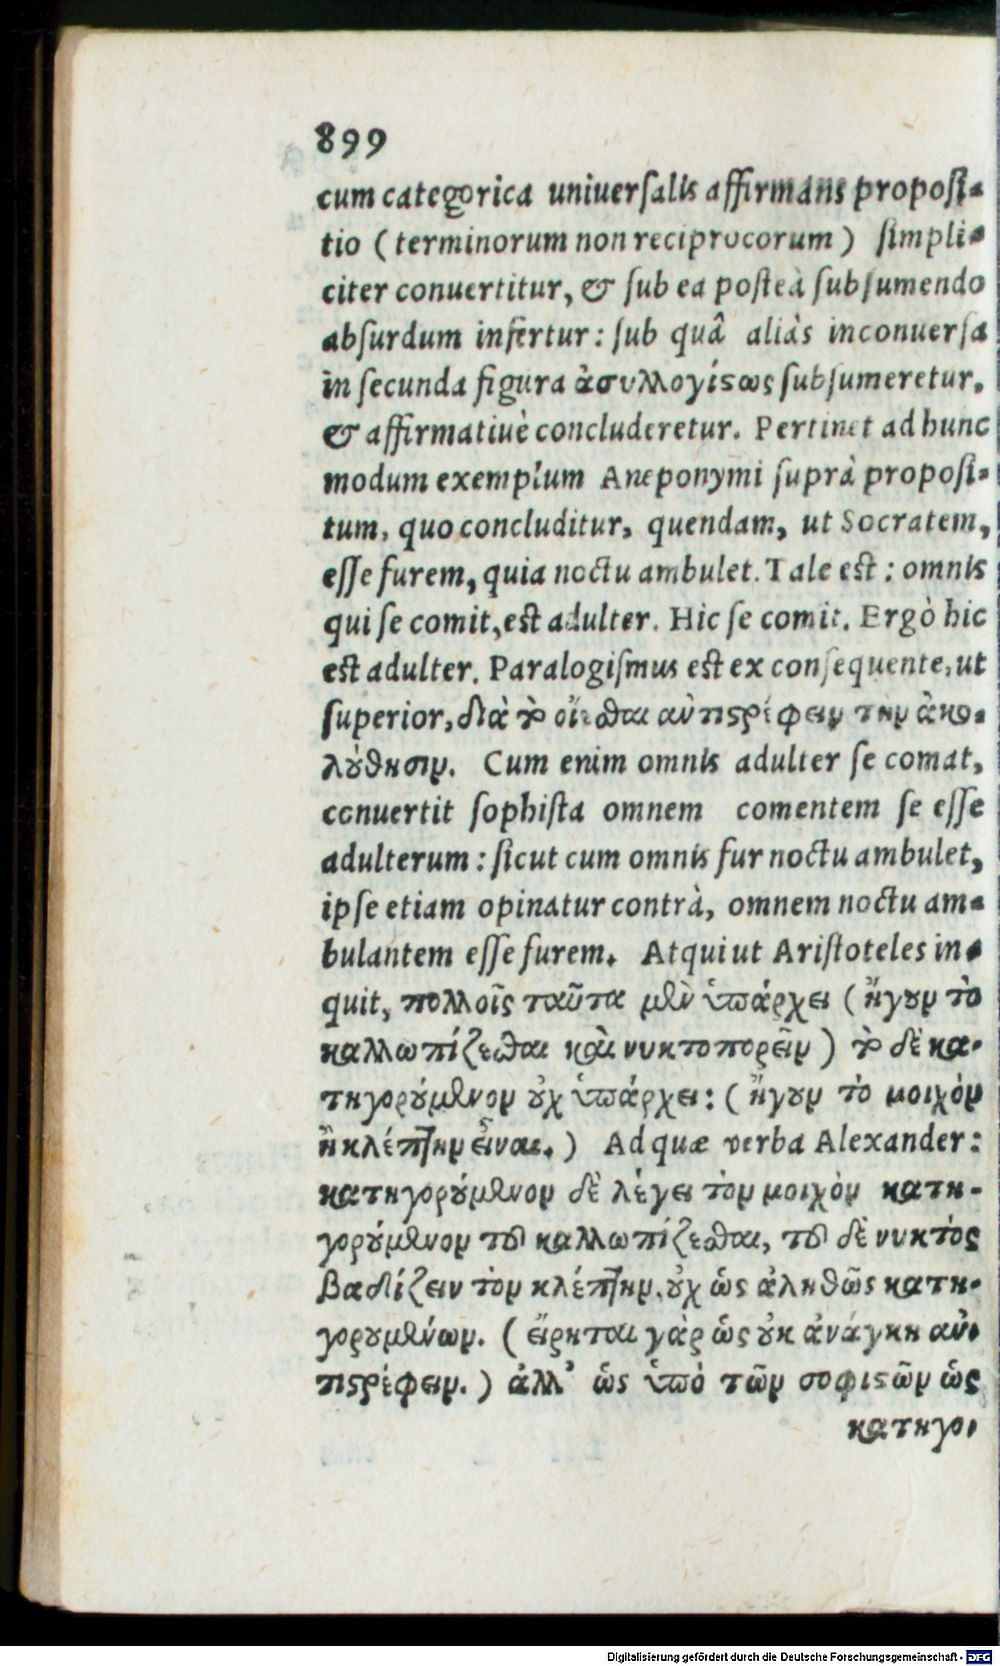 899
cum categorica uniuersalis affirmans proposi-
tio (terminorum non reciprocorum) simpli-
citer conuertitur, & sub ea posteà subsumendo
absurdum infertur: sub quâ aliàs inconuersa
in secunda figura ἀσυλλογίςως subsumeretur,
& affirmatiuè concluderetur. Pertinet ad hunc
modum exemplum Aneponymi suprà proposi-
tum, quo concluditur, quendam, ut Socratem,
esse furem, quia noctu ambulet. Tale est: omnis
qui se comit, est adulter. Hic se comit. Ergò hic
est adulter. Paralogismus est ex consequente, ut
superior, διὰ τὸ οἴεσθαι ἀντιςρέφειν τὴν ἀκο-
λούθησιν. Cum enim omnis adulter se comat,
conuertit sophista omnem comentem se esse
adulterum: sicut cum omnis fur noctu ambulet,
ipse etiam opinatur contrà, omnem noctu am-
bulantem esse furem. Atqui ut Aristoteles in-
quit, πολλοῖς ταῦτα μὲν ὑπάρχει (ἤγουν τὸ
καλλωπίζεσθαι καὶ νυκτοπορεῖν) τὸ δὲ κα-
τηγορούμενον οὐχ ὑπάρχει: (ἤγουν τὸ μοιχὸν
ἢ κλέπτην εἶναι.) Ad quæ verba Alexander:
κατηγορούμενον δὲ λέγει τὸν μοιχὸν κατη-
γορούμενον τοῦ καλλωπίζεσθαι, τοῦ δὲ νυκτὸς
βαδίζειν τὸν κλέπτην, οὐχ ὡς ἀληθῶς κατη-
γορουμένων. (εἴρηται γὰρ ὡς οὐκ ἀνάγκη ἀν-
τιςρέφειν.) ἀλλ' ὡς ὑπὸ τῶν σοφιςῶν ὡς
κατηγο-
Digitalisierung gefördert durch die Deutsche Forschungsgemeinschaft - DFG